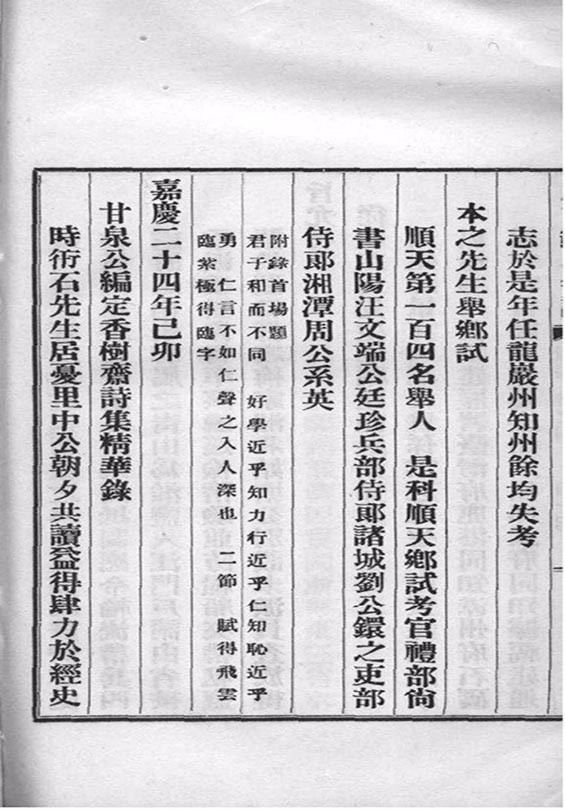 志於是年任龍巖州知州餘均失考
本之先生舉鄉試
順天第一百四名舉人　是科順天鄉試考官禮部尙
書山陽汪文端公廷珍兵部侍郞諸城劉公鐶之吏部
侍郞湘潭周公系英
附錄首場題
君子和而不同　好學近乎知力行近乎仁知恥近乎
勇　仁言不如仁聲之入人深也二節　賦得飛雲
臨紫極得臨字
嘉慶二十四年己卯
甘泉公編定香樹齋詩集精華錄
時衎石先生居憂里中公朝夕共讀益得肆力於經史